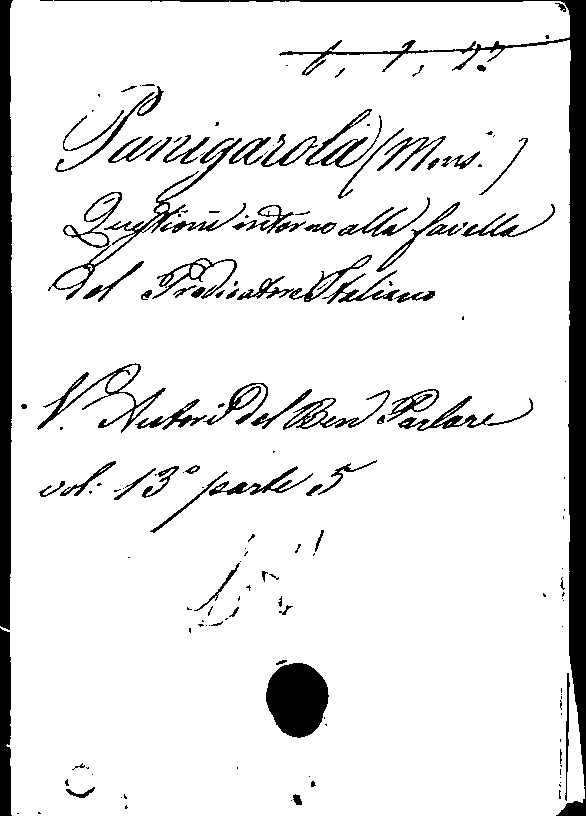 6, 1, 22
Panigarola (Mons.)
Questioni intorno alla favella
del Predicatore Italiano
V. Autori del Ben Parlare
vol: 13° parte 5